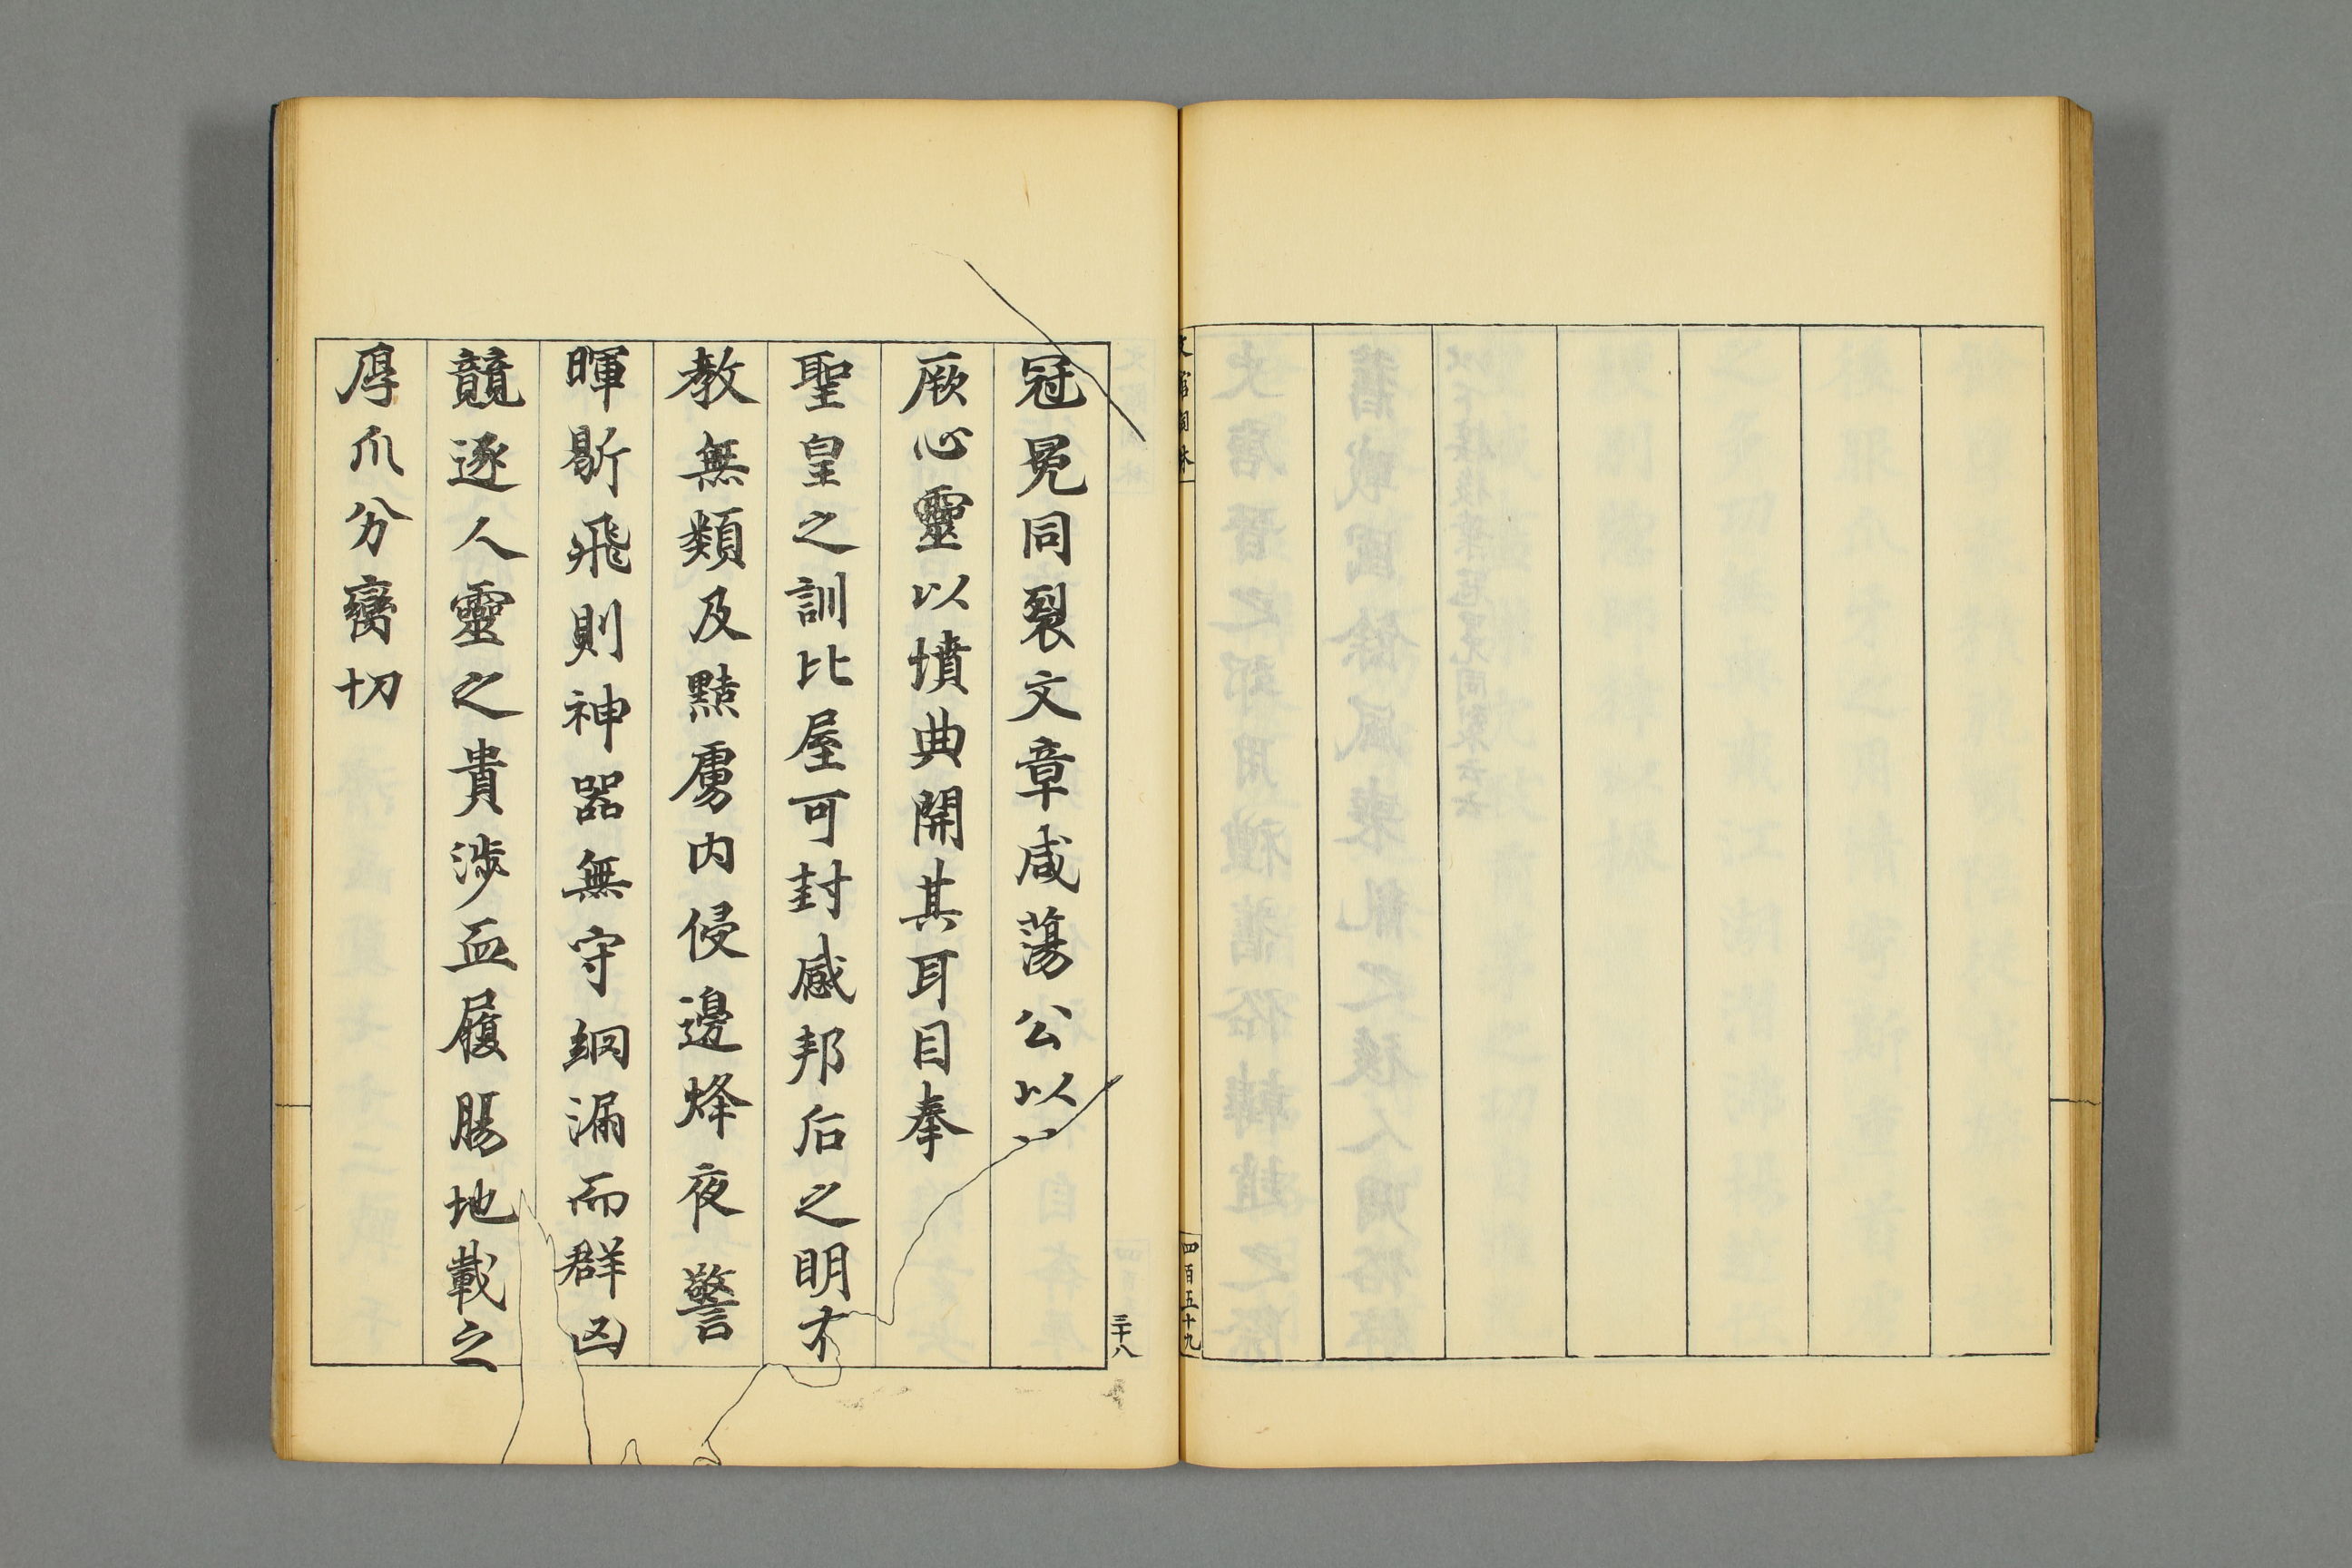 四百五十九
冠冕同裂文章咸蕩公以
厥心靈以墳典開其耳目奉
聖皇之訓比屋可封感邦后之明才
教無類及黠虜内侵邊烽夜警
暉翫飛則神器無守網漏而群凶
競逐人靈之貴渉血履腸地載之
厚爪分臠切
三十八